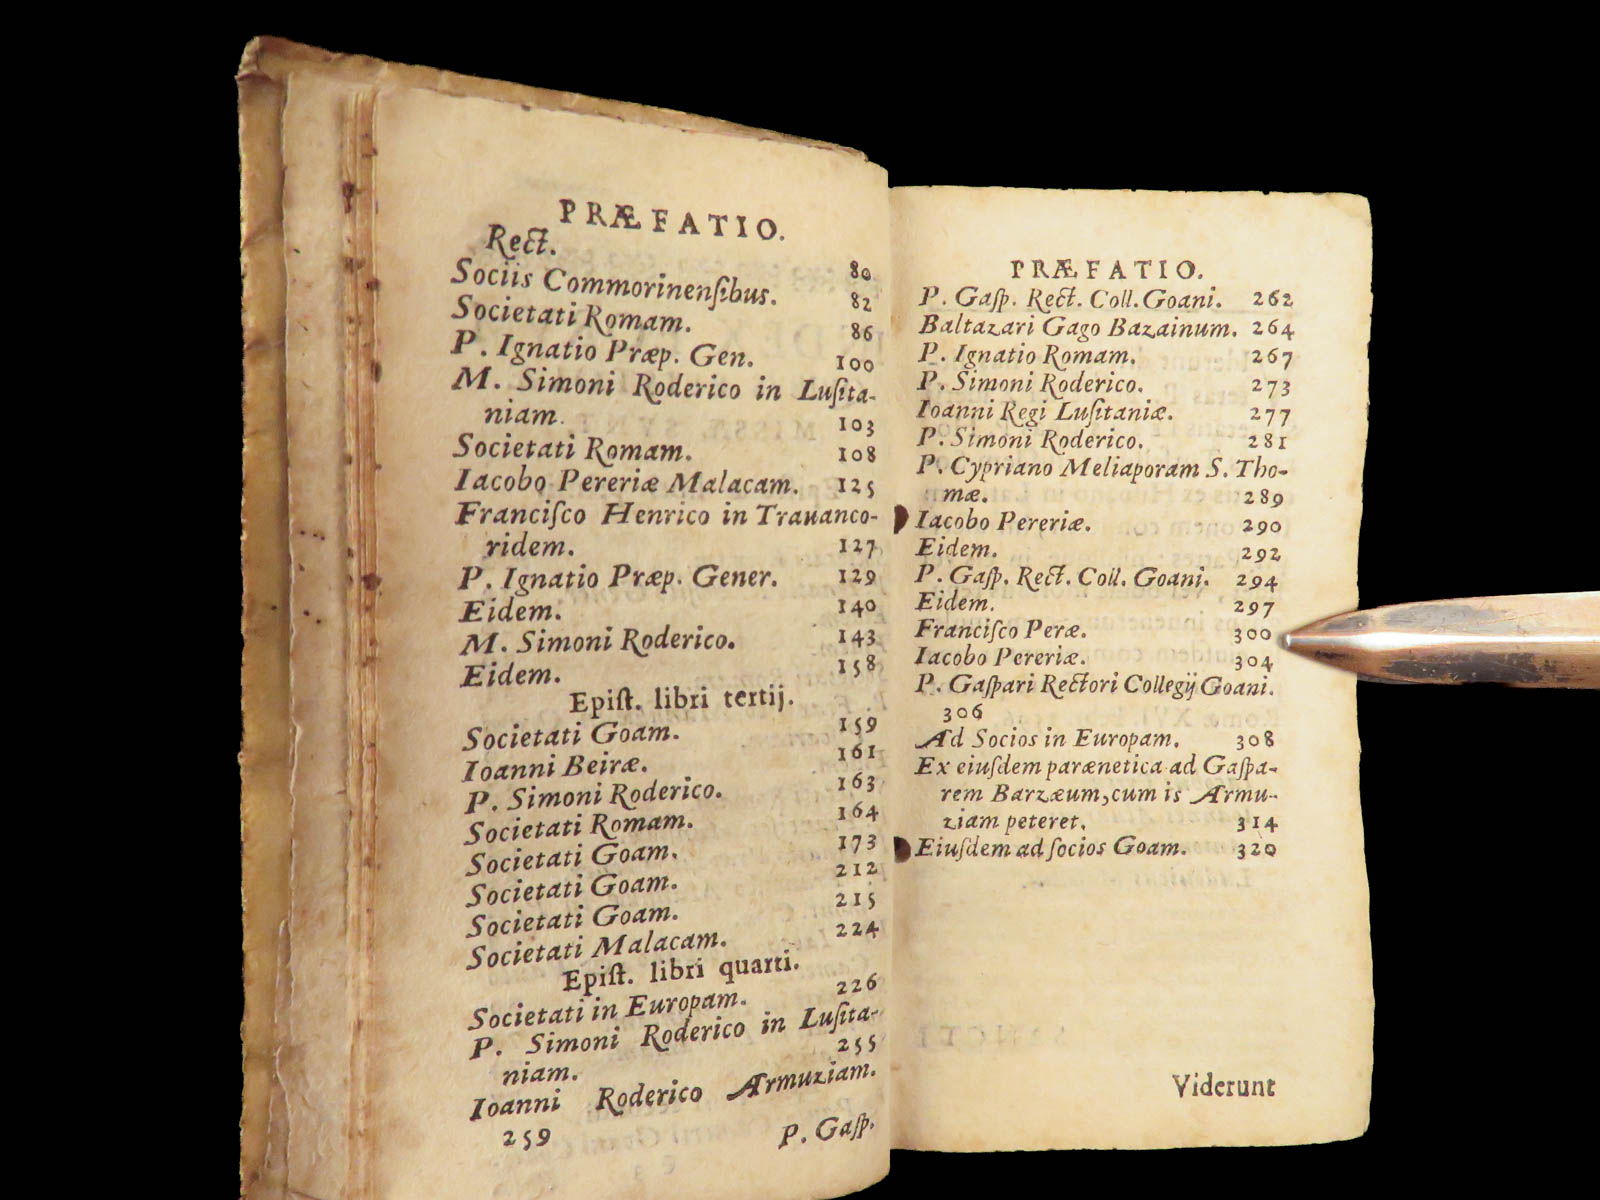 PRÆFATIO.
Rect. 80
Sociis Commorinenſibus. 82
Societati Romam. 86
P. Ignatio Præp. Gen. 100
M. Simoni Roderico in Luſita-
niam. 103
Societati Romam. 108
Iacobo Pereriæ Malacam. 125
Franciſco Henrico in Trauanco-
ridem. 127
P. Ignatio Præp. Gener. 129
Eidem. 140
M. Simoni Roderico. 143
Eidem. 158
Epiſt. libri tertij.
Societati Goam. 159
Ioanni Beiræ. 161
P. Simoni Roderico. 163
Societati Romam. 164
Societati Goam. 173
Societati Goam. 212
Societati Goam. 215
Societati Malacam. 224
Epiſt. libri quarti.
Societati in Europam. 226
P. Simoni Roderico in Luſita-
niam. 255
Ioanni Roderico Armuziam.
259
P. Gaſp.
PRÆFATIO.
P. Gaſp. Rect. Coll. Goani. 262
Baltazari Gago Bazainum. 264
P. Ignatio Romam. 267
P. Simoni Roderico. 273
Ioanni Regi Luſitaniæ. 277
P. Simoni Roderico. 281
P. Cypriano Meliaporam S. Tho-
mæ. 289
Iacobo Pereriæ. 290
Eidem. 292
P. Gaſp. Rect. Coll. Goani. 294
Eidem. 297
Franciſco Peræ. 300
Iacobo Pereriæ. 304
P. Gaſpari Rectori Collegij Goani.
306
Ad Socios in Europam. 308
Ex eiuſdem parænetica ad Gaſpa-
rem Barzæum, cum is Armu-
ziam peteret. 314
Eiuſdem ad ſocios Goam. 320
Viderunt